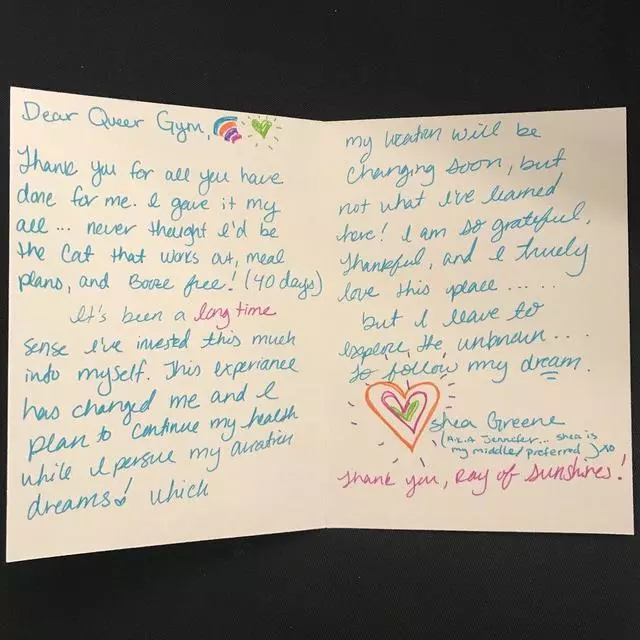 Dear Queer Gym,
Thank you for all you have
done for me. I gave it my
all ... never thought I'd be
the Cat that works out, meal
plans, and Booze free! (40 days)
It's been a long time
sense I've invested this much
into myself. This experience
has changed me and I
plan to continue my health
while I persue my aviation
dreams! which
my location will be
changing soon, but
not what I've learned
here! I am so grateful,
thankful, and I truely
love this place ......
but I leave to
explore the unknown ....
to follow my dream.
Shea Greene
(A.K.A Jennifer... shea is
my middle/preferred) xo
Thank you, Ray of Sunshines!